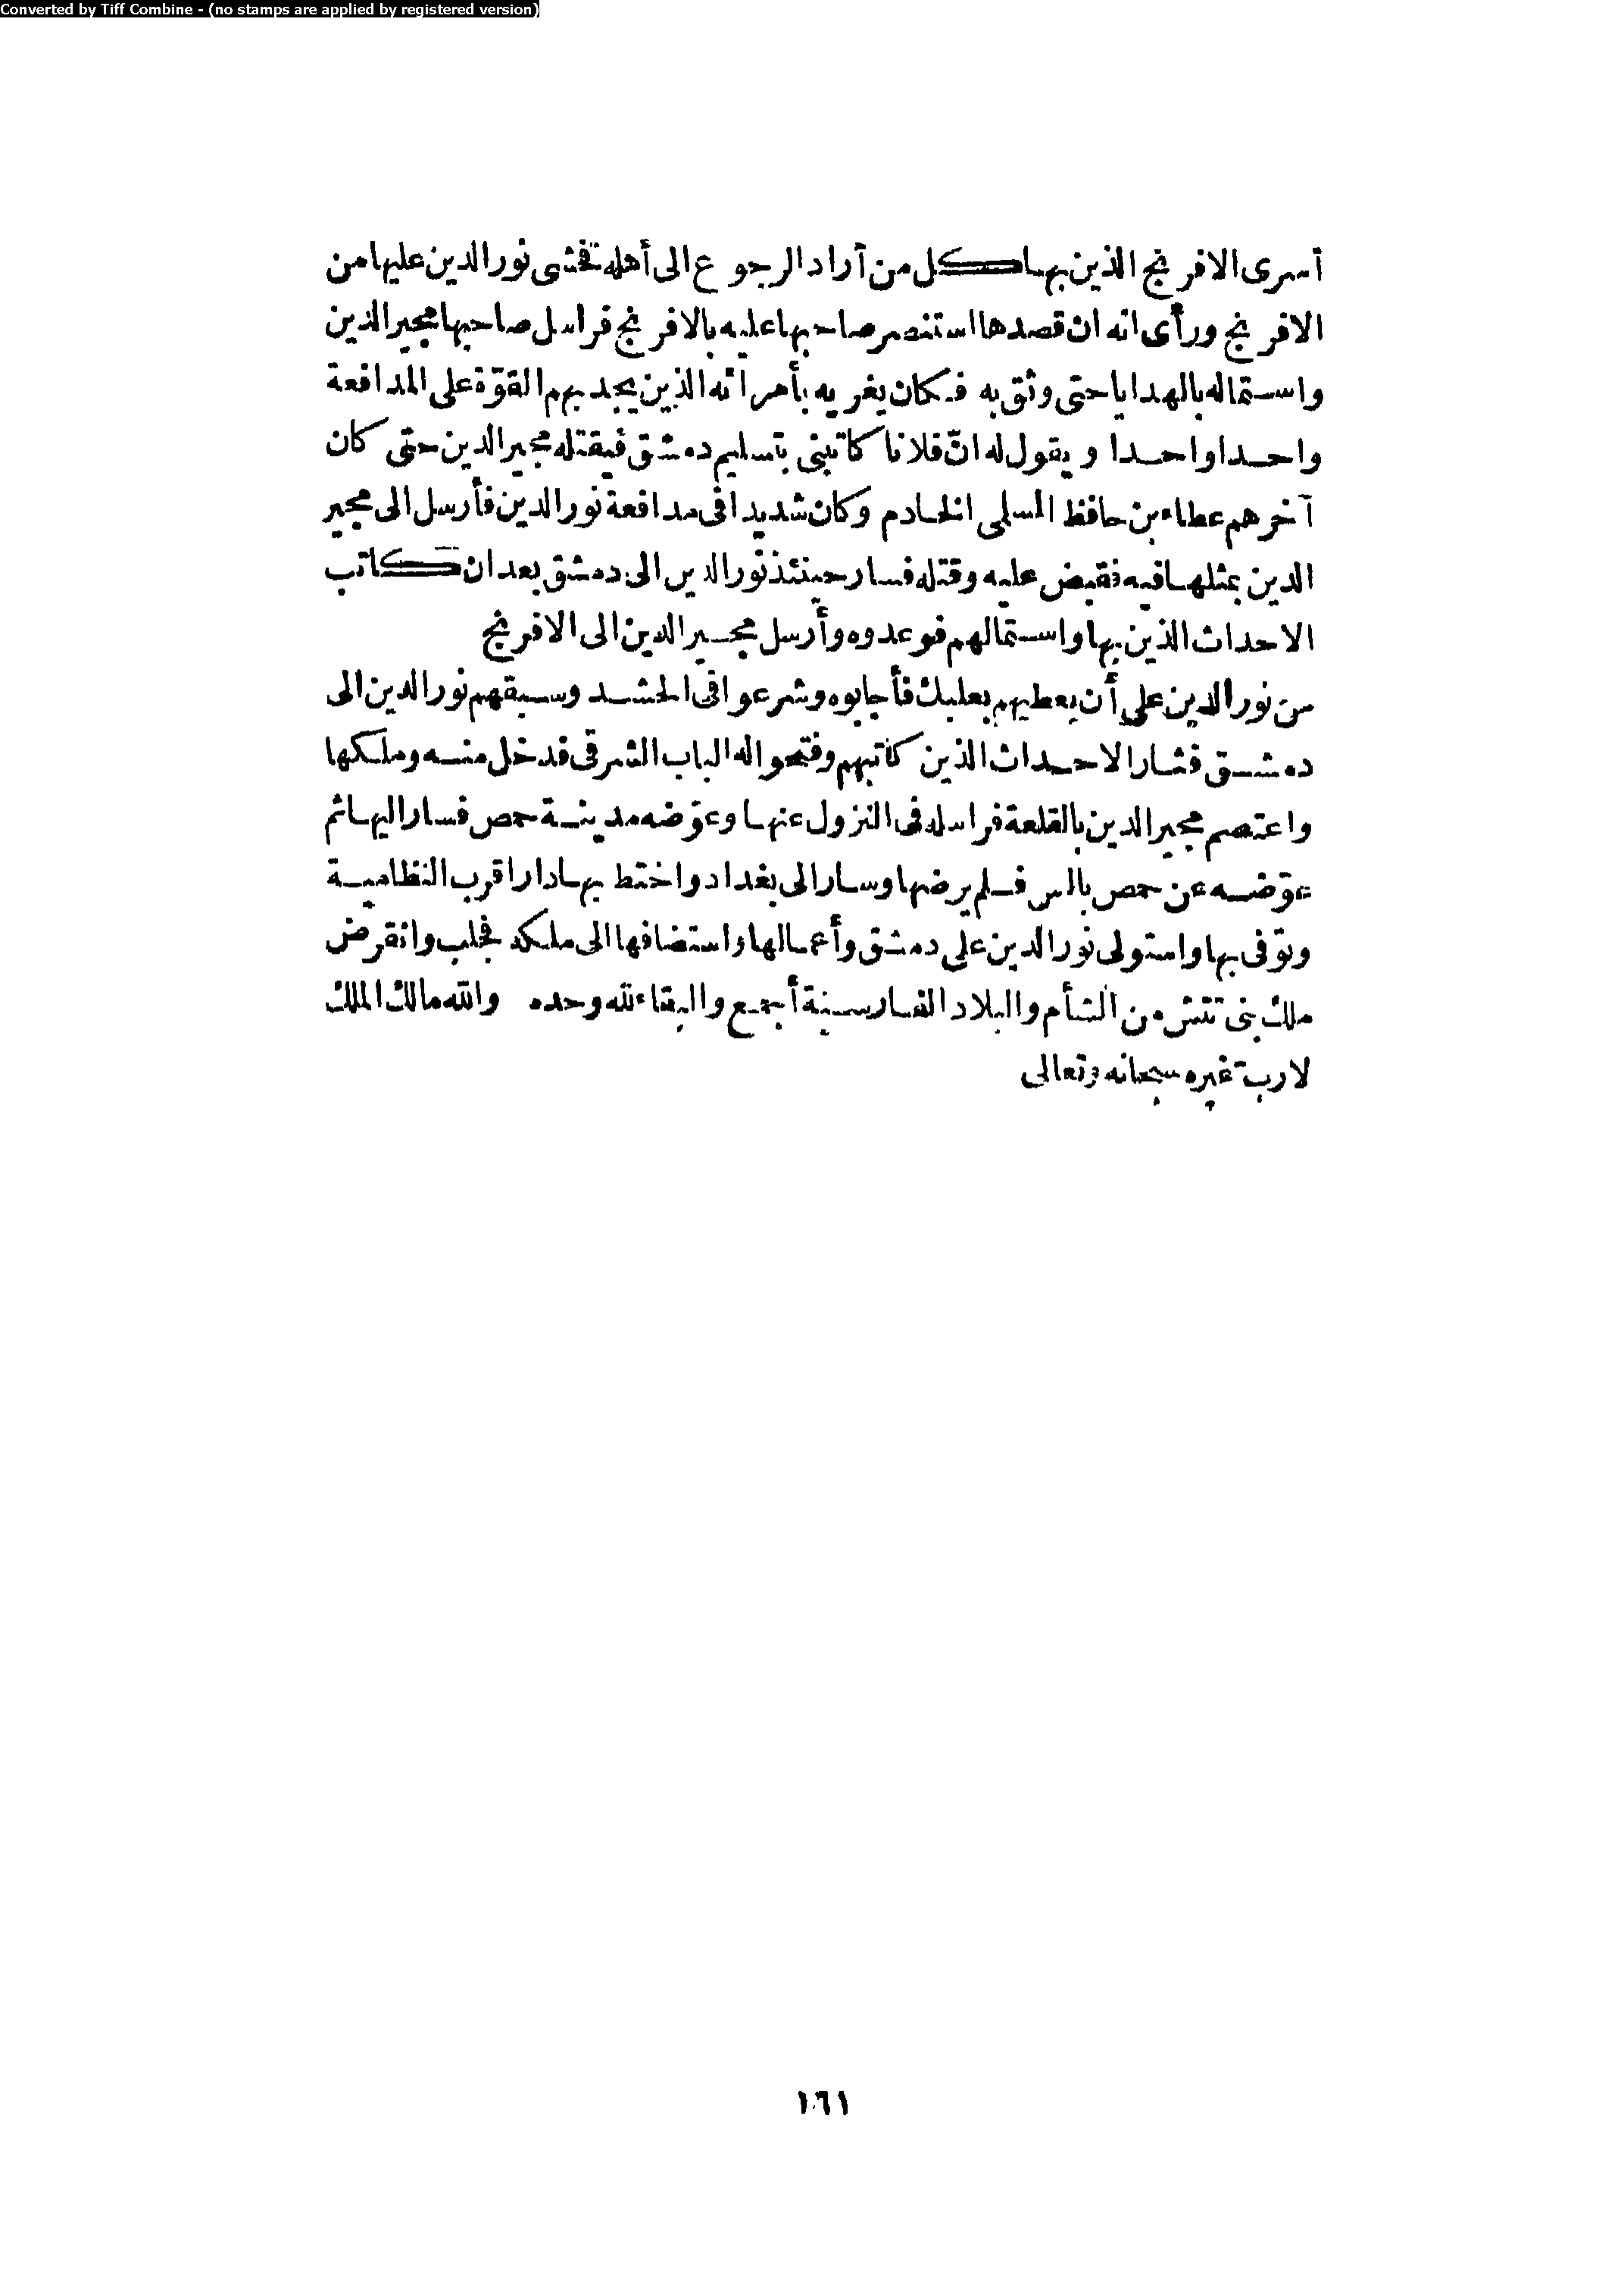 Converted by Tiff Combine - (no stamps are applied by registered version)
أسرى الافرنج الذين بها كل من أراد الرجوع الى أهله فخشى نور الدين عليها من
الافرنج ورأى انه ان قصدها استنصر صاحبها عليه بالافرنج فراسل صاحبها مجير الدين
واستماله بالهدايا حتى وثق به فكان يغريه بأمرائه الذين يجد بهم القوّة على المدافعة
واحدا واحدا ويقول له انّ فلانا كاتبنى بتسليم دمشق فيقتله مجير الدين حتى كان
آخرهم عطاء بن حافظ السلمى الخادم وكان شديدا فى مدافعة نور الدين فأرسل الى مجير
الدين بمثلها فيه فقبض عليه وقتله فسار حينئذ نور الدين الى دمشق بعد ان كاتب
الاحداث الذين بها واستمالهم فوعدوه وأرسل مجير الدين الى الافرنج
من نور الدين على أن يعطيهم بعلبك فأجابوه وشرعوا فى الحشد وسبقهم نور الدين الى
دمشق فثار الاحداث الذين كاتبهم وفتحوا له الباب الشرقى فدخل منه وملكها
واعتصم مجير الدين بالقلعة فراسله فى النزول عنها وعوّضه مدينة حمص فسار اليها ثم
عوّضه عن حمص بالس فلم يرضها وسار الى بغداد واختط بها دارا قرب النظامية
وتوفى بها واستولى نور الدين على دمشق وأعمالها واستضافها الى ملكه فى حلب وانقرض
ملك بنى تتش من الشأم والبلاد الفارسية أجمع والبقاء لله وحده والله مالك الملك
لا ربّ غيره سبحانه وتعالى
١٦١